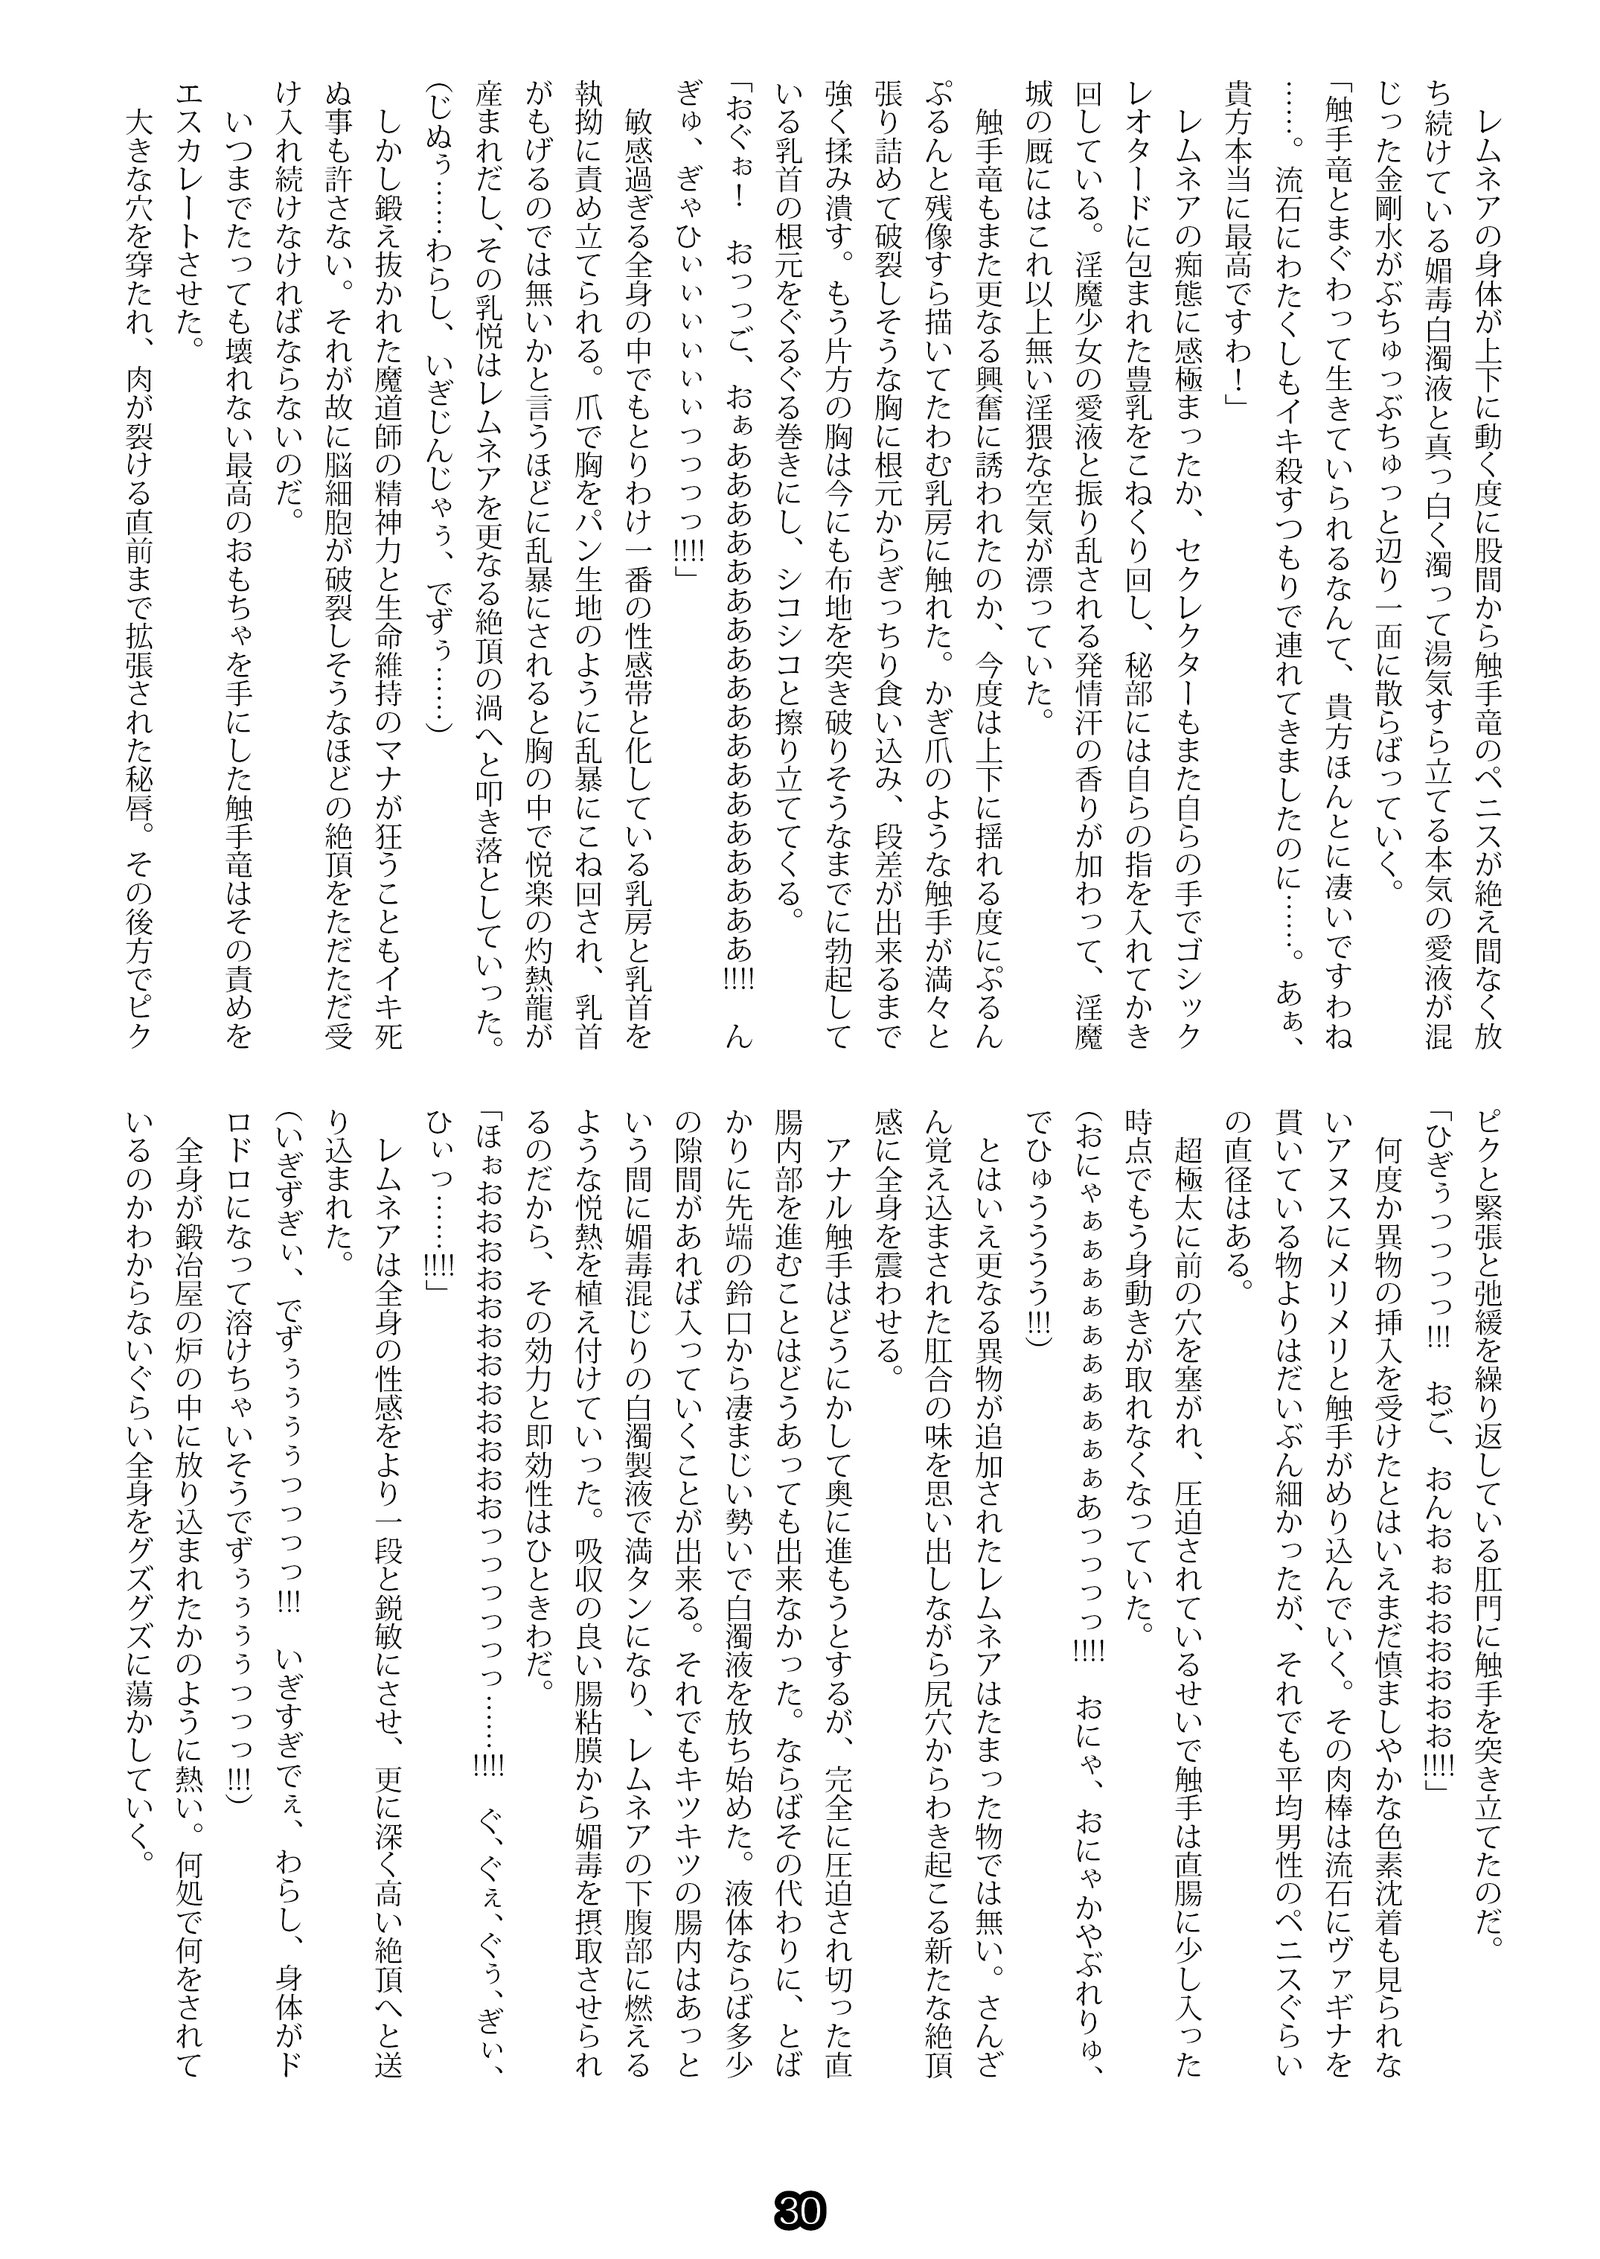 レムネアの身体が上下に動く度に股間から触手竜のペニスが絶え間なく放
ち続けている媚毒白濁液と真っ白く濁って湯気すら立てる本気の愛液が混
じった金剛水がぶちゅっぶちゅっと辺り一面に散らばっていく。
「触手竜とまぐわって生きていられるなんて、貴方ほんとに凄いですわね
……。流石にわたくしもイキ殺すつもりで連れてきましたのに……。あぁ、
貴方本当に最高ですわ！」
レムネアの痴態に感極まったか、セクレクターもまた自らの手でゴシック
レオタードに包まれた豊乳をこねくり回し、秘部には自らの指を入れてかき
回している。淫魔少女の愛液と振り乱される発情汗の香りが加わって、淫魔
城の厩にはこれ以上無い淫猥な空気が漂っていた。
触手竜もまた更なる興奮に誘われたのか、今度は上下に揺れる度にぷるん
ぷるんと残像すら描いてたわむ乳房に触れた。かぎ爪のような触手が満々と
張り詰めて破裂しそうな胸に根元からぎっちり食い込み、段差が出来るまで
強く揉み潰す。もう片方の胸は今にも布地を突き破りそうなまでに勃起して
いる乳首の根元をぐるぐる巻きにし、シコシコと擦り立ててくる。
「おぐぉ！　おっっご、おぁあああああああああああああああああ!!!!　ん
ぎゅ、ぎゃひぃぃぃぃぃぃっっっっ!!!!」
敏感過ぎる全身の中でもとりわけ一番の性感帯と化している乳房と乳首を
執拗に責め立てられる。爪で胸をパン生地のように乱暴にこね回され、乳首
がもげるのでは無いかと言うほどに乱暴にされると胸の中で悦楽の灼熱龍が
産まれだし、その乳悦はレムネアを更なる絶頂の渦へと叩き落としていった。
(じぬぅ……わらし、いぎじんじゃぅ、でずぅ……)
しかし鍛え抜かれた魔道師の精神力と生命維持のマナが狂うこともイキ死
ぬ事も許さない。それが故に脳細胞が破裂しそうなほどの絶頂をただただ受
け入れ続けなければならないのだ。
いつまでたっても壊れない最高のおもちゃを手にした触手竜はその責めを
エスカレートさせた。
大きな穴を穿たれ、肉が裂ける直前まで拡張された秘唇。その後方でピク
ピクと緊張と弛緩を繰り返している肛門に触手を突き立てたのだ。
「ひぎぅっっっっ!!!　おご、おんおぉおおおおおお!!!!」
何度か異物の挿入を受けたとはいえまだ慎ましやかな色素沈着も見られな
いアヌスにメリメリと触手がめり込んでいく。その肉棒は流石にヴァギナを
貫いている物よりはだいぶん細かったが、それでも平均男性のペニスぐらい
の直径はある。
超極太に前の穴を塞がれ、圧迫されているせいで触手は直腸に少し入った
時点でもう身動きが取れなくなっていた。
(おにゃぁぁぁぁぁぁぁぁぁぁあっっっっ!!!!　おにゃ、おにゃかやぶれりゅ、
でひゅぅぅぅぅ!!!)
とはいえ更なる異物が追加されたレムネアはたまった物では無い。さんざ
ん覚え込まされた肛合の味を思い出しながら尻穴からわき起こる新たな絶頂
感に全身を震わせる。
アナル触手はどうにかして奥に進もうとするが、完全に圧迫され切った直
腸内部を進むことはどうあっても出来なかった。ならばその代わりに、とば
かりに先端の鈴口から凄まじい勢いで白濁液を放ち始めた。液体ならば多少
の隙間があれば入っていくことが出来る。それでもキツキツの腸内はあっと
いう間に媚毒混じりの白濁製液で満タンになり、レムネアの下腹部に燃える
ような悦熱を植え付けていった。吸収の良い腸粘膜から媚毒を摂取させられ
るのだから、その効力と即効性はひときわだ。
「ほぉおおおおおおおおおおおおおおっっっっっっ……!!!!　ぐ、ぐぇ、ぐぅ、ぎぃ、
ひぃっ……!!!!」
レムネアは全身の性感をより一段と鋭敏にさせ、更に深く高い絶頂へと送
り込まれた。
(いぎずぎぃ、でずぅぅぅぅっっっっ!!!　いぎすぎでぇ、わらし、身体がド
ロドロになって溶けちゃいそうでずぅぅぅぅっっっ!!!)
全身が鍛冶屋の炉の中に放り込まれたかのように熱い。何処で何をされて
いるのかわからないぐらい全身をグズグズに蕩かしていく。
30